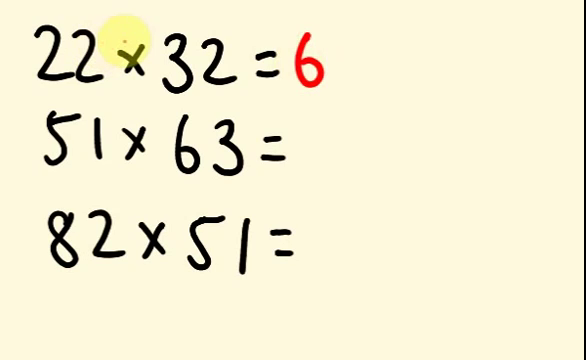 22 × 32 = 6
51 × 63 =
82 × 51 =